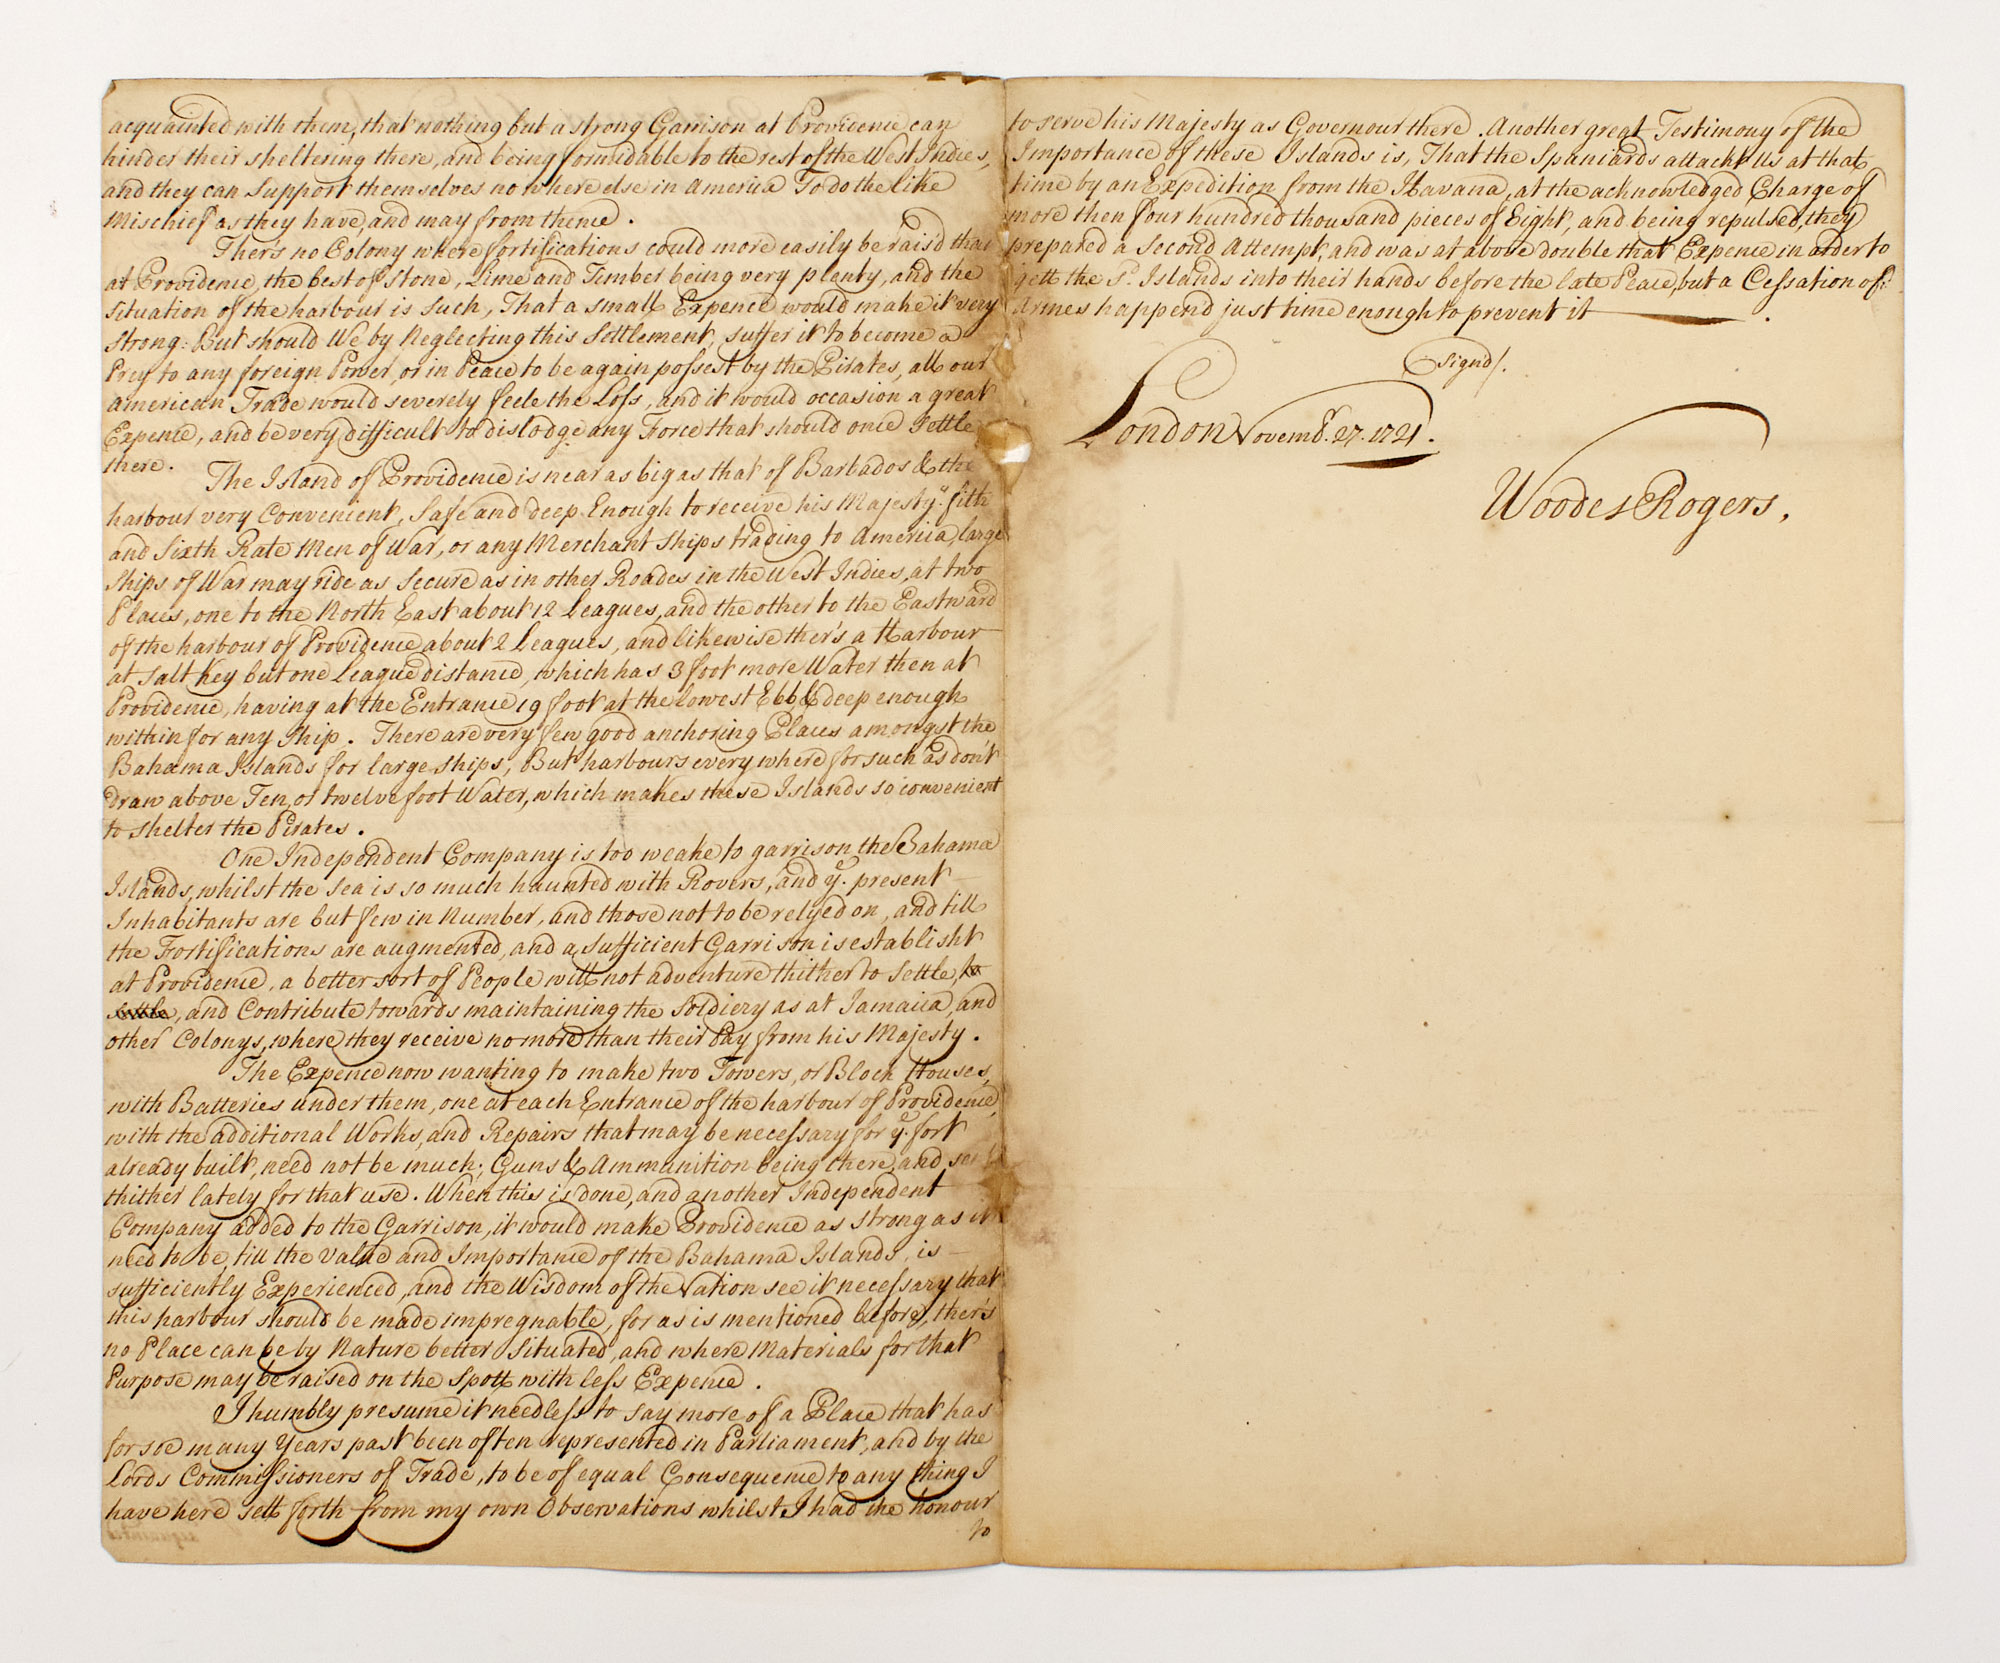 acquainted with them, that nothing but a strong Garrison at Providence can
hinder their sheltering there, and being formidable to the rest of the West Indies,
and they can Support themselves no where else in America To do the like
Mischief as they have, and may from thence.
Ther's no Colony where fortifications could more easily be rais'd than
at Providence, the best of Stone, Lime and Timber being very plenty, and the
situation of the harbour is such, That a small Expence would make it very
strong: But should We by Neglecting this Settlement, suffer it to become a
Prey to any foreign Power, or in Peace to be again possest by the Pirates, all our
American Trade would severely feele the Loss, and it would occasion a great
Expence, and be very difficult to dislodge any Force that should once Settle
there.
The Island of Providence is near as big as that of Barbados & the
harbour very Convenient, Safe and deep Enough to receive his Majesty's fifth
and Sixth Rate Men of War, or any Merchant Ships trading to America, large
Ships of War may ride as Secure as in other Roades in the West Indies, at two
Places, one to the North East about 12 Leagues, and the other to the Eastward
of the harbour of Providence about 2 Leagues, and likewise ther's a Harbour
at Salt Key but one League distance, which has 3 foot more Water then at
Providence, having at the Entrance 19 foot at the lowest Ebb, & deep enough
within for any Ship. There are very few good anchoring Places amongst the
Bahama Islands for large ships, But harbours every where for such as don't
draw above Ten, or twelve foot Water, which makes these Islands so convenient
to shelter the Pirates.
One Independent Company is too weake to garrison the Bahama
Islands, whilst the Sea is so much haunted with Rovers, and ye. present
Inhabitants are but few in Number, and those not to be relyed on, and till
the Fortifications are augmented, and a Sufficient Garrison is establisht
at Providence, a better sort of People will not adventure thither to Settle, to
settle, and Contribute towards maintaining the Soldiery as at Jamaica, and
other Colonys, where they receive no more than their Pay from his Majesty.
The Expence now wanting to make two Towers, or Block Houses,
with Batteries under them, one at each Entrance of the harbour of Providence,
with the additional Works, and Repairs that may be necessary for ye. fort
already built, need not be much; Guns & Ammunition being there, and sent
thither lately for that use. When this is done, and another Independent
Company added to the Garrison, it would make Providence as strong as it
need to be, till the Value and Importance of the Bahama Islands, is
sufficiently Experienced, and the Wisdom of the Nation see it necessary that
this harbour should be made impregnable, for as is mentioned before, ther's
no Place can be by Nature better Situated, and where Materials for that
Purpose may be raised on the Spott with less Expence.
I humbly presume it needless to say more of a Place that has
for soe many Years past been often represented in Parliament, and by the
Lords Commissioners of Trade, to be of equal Consequence to any thing I
have here sett forth from my own Observations whilst I had the honour
to
to serve his Majesty as Governour there. Another great Testimony of the
Importance of these Islands is, That the Spaniards attackt Us at that
time by an Expedition from the Havana, at the acknowledged Charge of
more then four hundred thousand pieces of Eight, and being repulsed, they
prepared a Second Attempt, and was at above double that Expence in order to
gett the sd. Islands into their hands before the late Peace, but a Cessation of
Armes happend just time enough to prevent it.
Signd/.
London Novembr. 27. 1721.
Woodes Rogers.